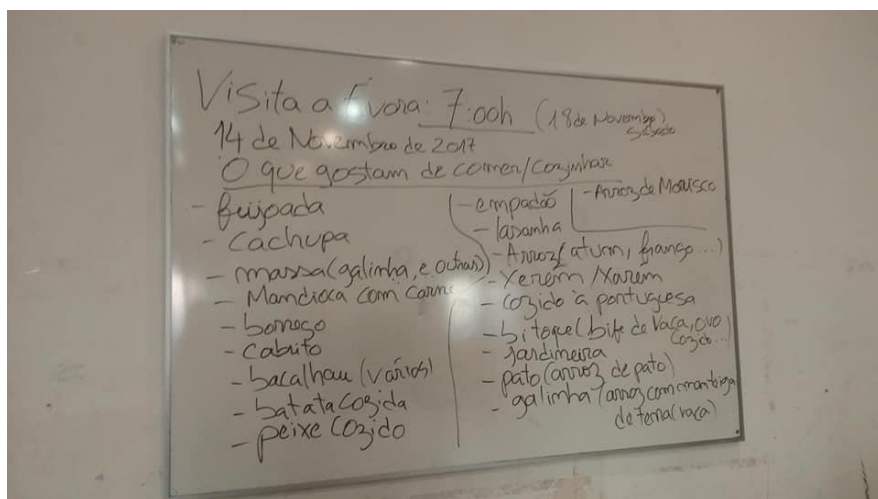 Visita a Évora: 7:00h (18 de Novembro)
Sábado
14 de Novembro de 2017
O que gostam de comer/cozinhar
- feijoada
- Cachupa
- massa (galinha, e outras)
- Mandioca com carne
- borrego
- cabrito
- bacalhau (vários)
- batata cozida
- peixe cozido
- empadão
- lasanha
- Arroz de Marisco
- Arroz (atum, frango...)
- Xerém/Xarem
- cozido à portuguesa
- bitoque (bife de vaca, ovo
cozido...)
- jardineira
- pato (arroz de pato)
- galinha / arroz com manteiga
de terra (vaca)